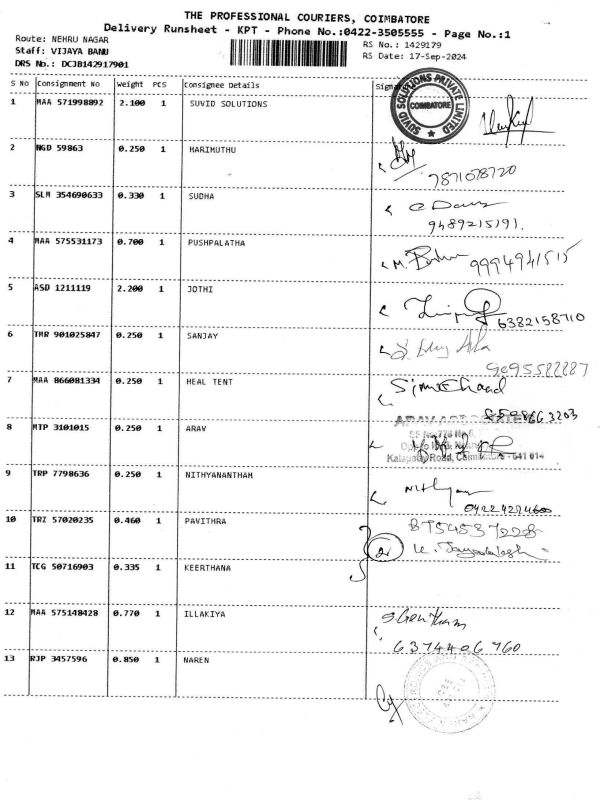 THE PROFESSIONAL COURIERS, COIMBATORE
Delivery Runsheet - KPT - Phone No.:0422-3505555 - Page No.:1
Route: NEHRU NAGAR
Staff: VIJAYA BANU
DRS No.: DCJB142917901
RS No.: 1429179
RS Date: 17-Sep-2024
S No Consignment No Weight PCS Consignee Details
1 MAA 571998892 2.100 1 SUVID SOLUTIONS
SUVID SOLUTIONS PRIVATE LIMITED
COIMBATORE
2 NGD 59863 0.250 1 MARIMUTHU
7871078720
3 SLM 354690633 0.330 1 SUDHA
9489215191.
4 MAA 575531173 0.700 1 PUSHPALATHA
9994941515
5 ASD 1211119 2.200 1 JOTHI
6382158710
6 TMR 901025847 0.250 1 SANJAY
7 MAA 866081334 0.250 1 HEAL TENT
8 MTP 3101015 0.250 1 ARAV
ARAV ASSOCIATES
Kalapatti Road, Coimbatore - 641 014
9 TRP 7798636 0.250 1 NITHYANANTHAM
10 TRZ 57020235 0.460 1 PAVITHRA
11 TCG 50716903 0.335 1 KEERTHANA
12 MAA 575148428 0.770 1 ILLAKIYA
6374406760
13 RJP 3457596 0.850 1 NAREN